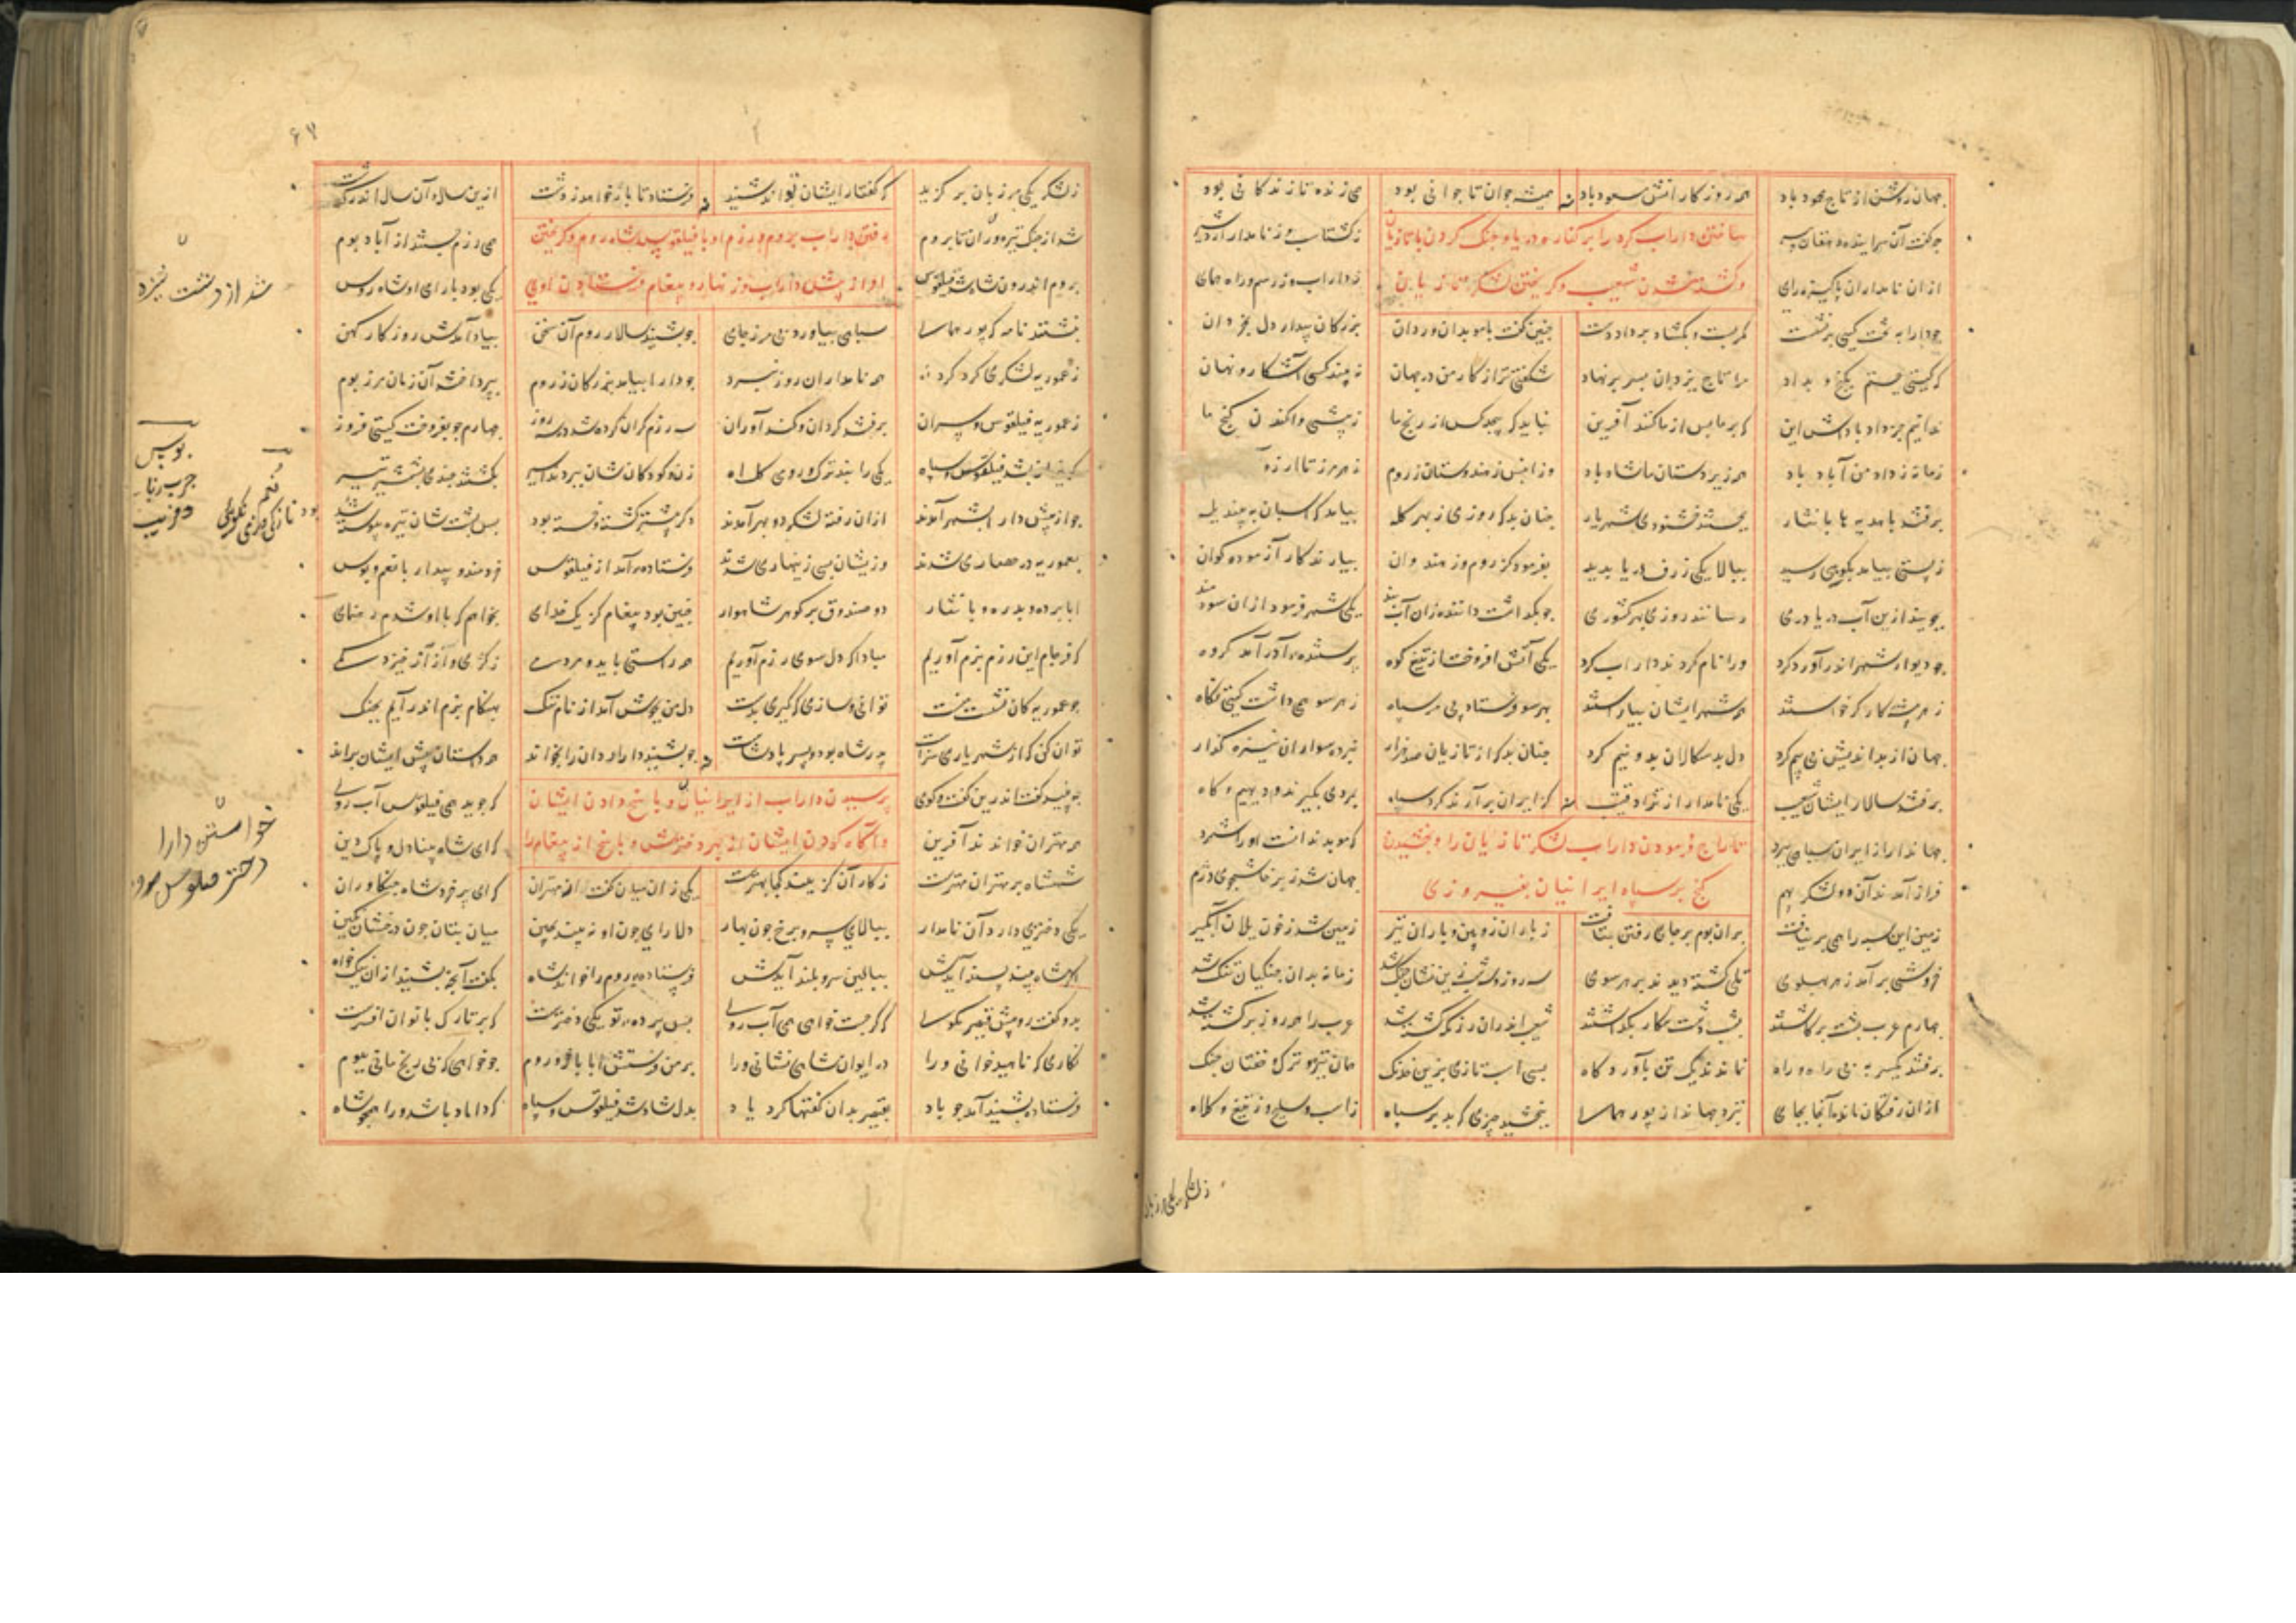 جهان روشن از تاج محمود باد همه روزکارانش مسعود باد همیشه جوان تا جوانی بود همی زنده تا زندکانی بود
ساختن داراب کرد را بر کنار رود دریا و جنک کردن با تازیان
و کشته شدن شعیب و کریختن لشکر تازیان
چو کفت آن سراینده دهقان پیر زکشتاسب وز نامدار اردشیر
ازان نامداران پاکیزه رای ز داراب وز رسم و راه همای
چو دارا به تخت کیی بر نشست کمر بست و بکشاد بر داد دست چنین کفت با موبدان و ردان بزرکان بیدار دل بخردان
که کیتی نجستم برنج و بداد مرا تاج یزدان بسر بر نهاد شکفتی تر از کار من در جهان نه بیند کسی آشکار و نهان
ندانیم جز داد پاداش این که بر ما پس از ما کنند آفرین نباید که پیچد کس از رنج ما ز بیشی و اکندن کنج ما
زمانه ز داد من آباد باد همه زیردستان ما شاد باد وزانپس ز هندوستان وز روم ز هر مرز تا ارزه
برفتند با هدیه ها با نثار بجستند خشنودی شهریار چنان بد که روزی ز بهر کله بیامد که اسبان به بیند یله
ز پستی بیامد بکوهی رسید ببالا یکی ژرف دریا بدید بفرمود کز روم وز هندوان بیارند کار آزموده کوان
بجویند ازین آب دریا دری رسانند روزی بهر کشوری چو بکداشت داننده زان آب بند یکی شهر فرمود ازان سودمند
چو دیوار شهر اندر آورد کرد ورا نام کردند داراب کرد یکی آتش افروخت از تیغ کوه پرستنده آذر آمد کروه
ز هر پیشه کارکر خواستند همه شهر ایشان بیاراستند بهر سو فرستاد بی مر سپاه ز هر سو همی داشت کیتی نکاه
جهان از بداندیش بی بیم کرد دل بدسکالان بدو نیم کرد چنان بد که از تازیان صد هزار نبرده سواران نیزه کذار
برفتند سالار ایشان شعیب یکی نامدار از نژاد قتیب کز ایران برآرند کرد سپاه بمردی بکیرند دیهیم و کاه
تاراج فرمودن داراب لشکر تازیان را و بخشیدن
کنج بر سپاه ایرانیان بفیروزی
جهاندار از ایران سپاهی ببرد که موبد ندانست اورا شمرد
فراز آمدند آن دو لشکر بهم جهان شد ز پرخاشجوی دژم
زمین این سپه را همی بر نتافت بران بوم بر جای رفتن نیافت ز باران ژوپین و باران تیر زمین شد ز خون یلان آبکیر
خروشی برآمد ز هر پهلوی تلی کشته دیدند بر هر سوی سه روز و سه شب زین نشان جنک شد زمانه بدان جنکیان تنک شد
چهارم عرب پشت برکاشتند بشب دشت پیکار بکذاشتند شعیب اندران رزمکه کشته شد عرب را همه روز برکشته شد
برفتند یکسر به بی راه و راه نماندند یک تن بآوردکاه بسی اسب تازی بزین خدنک همان نیزه و ترک و خفتان جنک
ازان رفتکان ماند آنجا بجای نبرد جهاندار پور همای ببخشید چیزی که بد بر سپاه ز اسب و سلیح و ز تیغ و کلاه
ز لشکر یکی مرزبان
۶۷
ز لشکر یکی مرزبان بر کزید که کفتار ایشان تواند شنید فرستاد تا باژ خواهد ز دشت ازین سال و آن سال اندر کذشت
رفتن داراب بروم و رزم او با فیلقوس شاه روم و کریختن
او از پیش داراب وز نهار و پیغام فرستادن اوی
شد از جنک نیزه وران تا بروم همی رزم جستند از آباد بوم
بروم اندرون شاه بد فیلقوس یکی بود با رای او شاه روس
نبشتند نامه که پور همای سپاهی بیاورد بی مر ز جای چو بشنید سالار روم آن سخن بیاد آمدش روزکار کهن
ز عموریه لشکری کرد کرد همه نامداران روز نبرد چو دارا بیامد بزرکان ز روم بپرداختند آن زمان مرز بوم
ز عموریه فیلقوس و سران برفتند کردان و کنداوران سه رزم کران کرده شد در سه روز چهارم چو بفروخت کیتی فروز
کریزان بشد فیلقوس و سپاه یکی را نبد ترک و رومی کلاه زن و کودکان شان ببردند اسیر بکشتند چندی بشمشیر و تیر
چو از پیش دارا بشهر آمدند ازان رفته لشکر دو بهر آمدند دکر بیشتر کشته و خسته بود پس پشت شان نیزه پیوسته شد
بعموریه در حصاری شدند وزیشان بسی زینهاری شدند فرستاده آمد از فیلقوس خردمند و بیدار با نعم و بوس
ابا برده و بدره و با نثار دو صندوق پر کوهر شاهوار چنین بود پیغام کز یک خدای بخواهم که با او شدم رهنمای
که فرجام این رزم بزم آوریم مبادا که دل سوی رزم آوریم همه راستی باید و مردمی ز کژی و آز آز خیزد کمی
چو عموریه کان نشست منست توانی و سازی که کیری بدست دل من بجوش آمد از نام ننک بهنکام بزم اندر آیم بجنک
توان کن که از شهریاری سزاست پدر شاه بود و پسر پادشاست چو بشنید دارا ردان را بخواند همه داستان پیش ایشان براند
پرسیدن داراب از ایرانیان و پاسخ دادن ایشان
و آکاه کردن ایشان از بهر دخترش و پاسخ از پیغام را
چه بینید کفت اندرین کفت و کوی که جوید همی فیلقوس آب روی
همه مهتران خواندند آفرین که ای شاه بینادل و پاک دین
شهنشاه بر مهتران مهترست ز کار آن کزیند کجا بهترست یکی زان میان کفت از مهتران که ای پر خرد شاه جنکاوران
یکی دختری دارد آن نامدار ببالای سرو برخ چون بهار دلارای چون او نه بیند بچین میان بتان چون درخشان نکین
اکر شاه بیند پسند آیدش ببالین سرو بلند آیدش فرستاده روم را خواند شاه بکفت آنچه بشنید ازان نیکخواه
بدو کفت رو پیش قیصر بکوی که کر جست خواهی همی آب روی پس پرده تو یکی دخترست که بر تارک بانوان افسرست
نکاری که ناهید خوانی ورا در ایوان شاهی نشانی ورا بر من فرستش ابا باژ روم چو خواهی که بی رنج مانی ببوم
فرستاده بشنید آمد چو باد بقیصر بدان کفتها کرد یاد بدل شاد شد فیلقوس و سپاه که داماد باشد ورا همچو شاه
شد از دشت نیزه
بوس
نعم
خواستن دارا
دختر فیلقوس